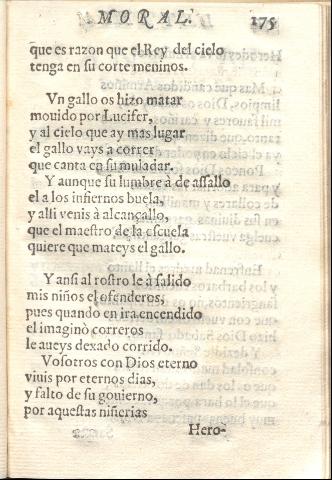 MORAL. 175
que es razon que el Rey del cielo
tenga en su corte meninos.
Vn gallo os hizo matar
mouido por Lucifer,
y al cielo que ay mas lugar
el gallo vays a correr
que canta en su muladar.
Y aunque su lumbre à de assallo
el a los infiernos buela,
y alli venis à alcançallo,
que el maestro de la escuela
quiere que mateys el gallo.
Y ansi al rostro le à salido
mis niños el ofenderos,
pues quando en ira encendido
el imaginò correros
le aueys dexado corrido.
Vosotros con Dios eterno
viuis por eternos dias,
y falto de su gouierno,
por aquestas niñerias
Hero-